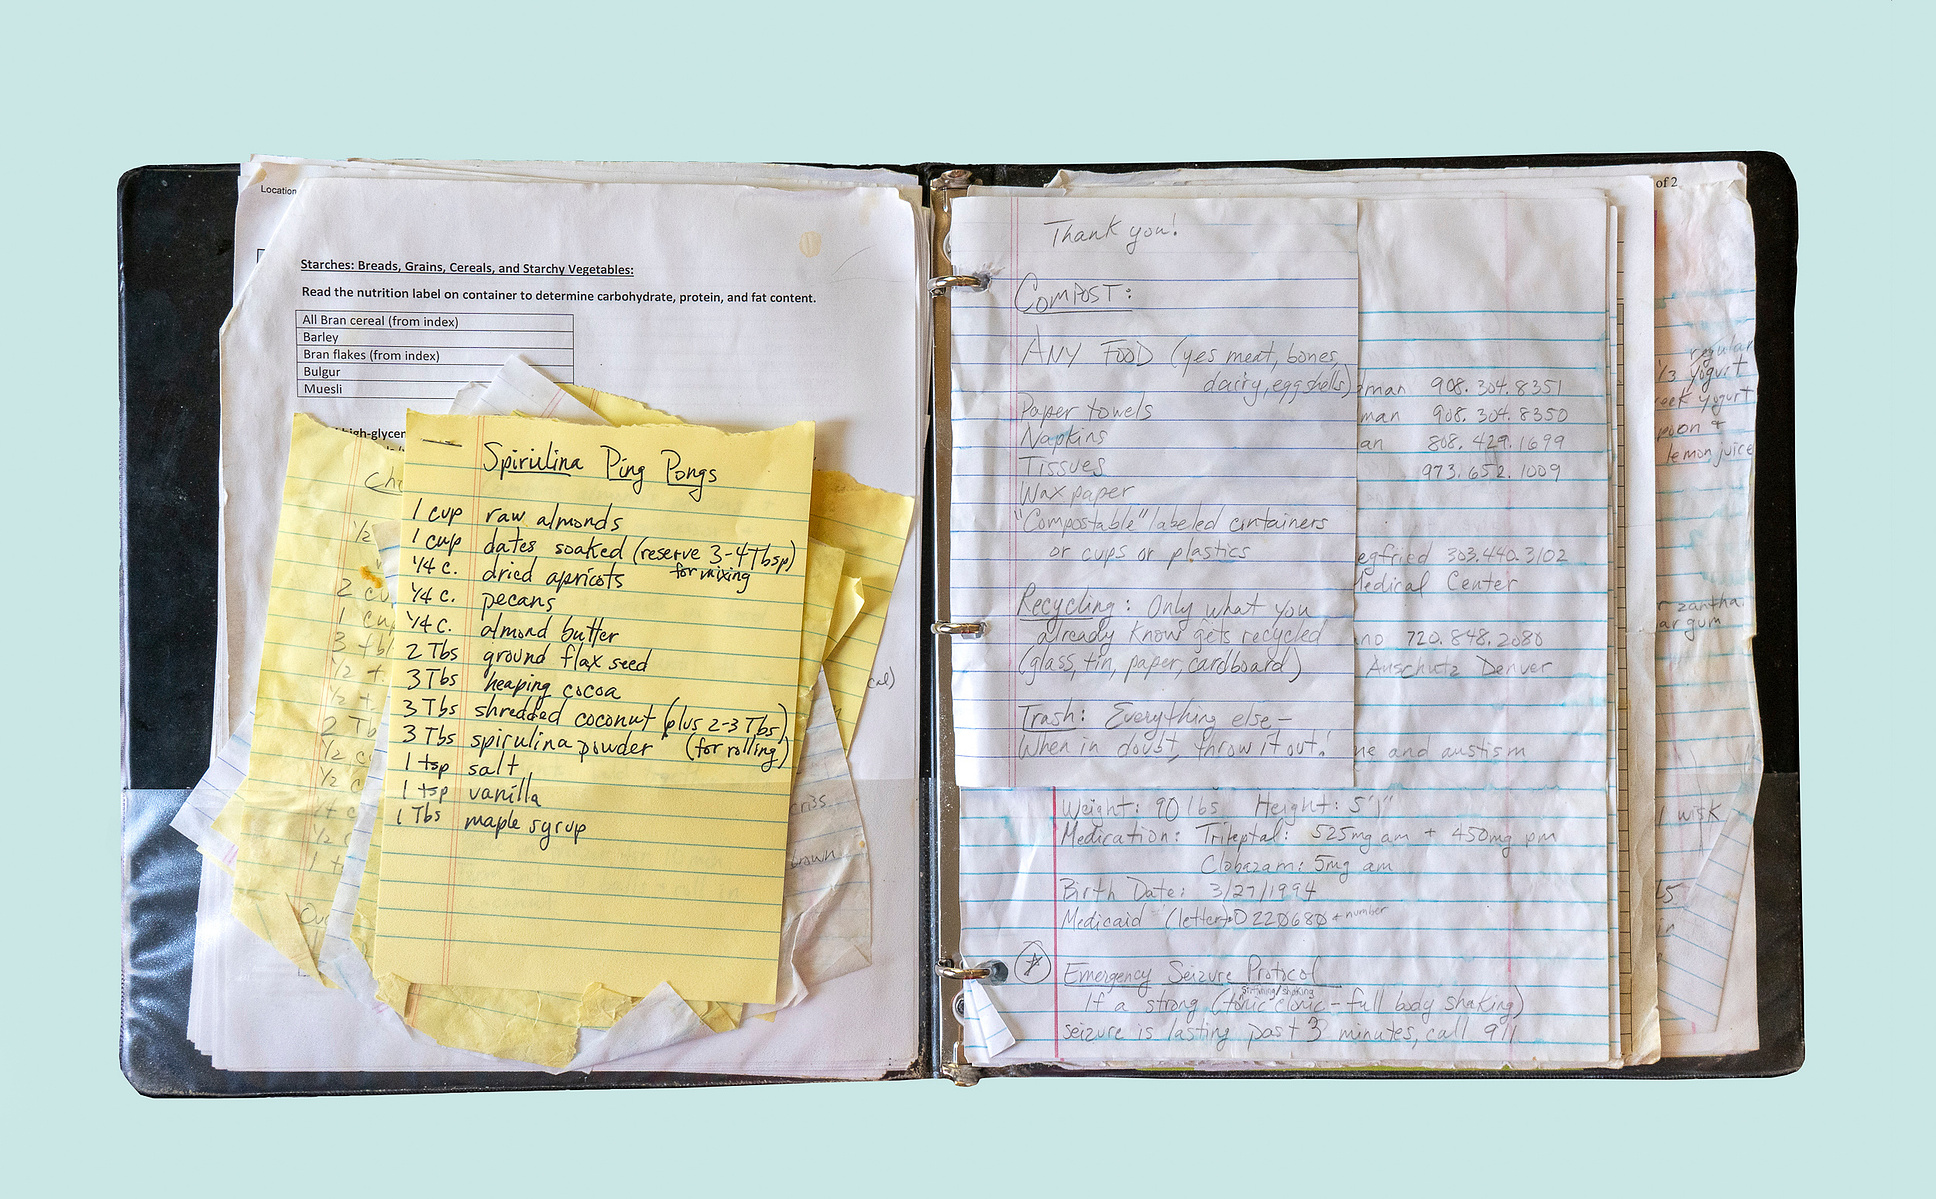 Location
Starches: Breads, Grains, Cereals, and Starchy Vegetables:
Read the nutrition label on container to determine carbohydrate, protein, and fat content.
All Bran cereal (from index)
Barley
Bran flakes (from index)
Bulgur
Muesli
high-glycer
Spirulina Ping Pongs
1 cup raw almonds
1 cup dates soaked (reserve 3-4 Tbsp)
for mixing
1/4 c. dried apricots
1/4 c. pecans
1/4 c. almond butter
2 Tbs ground flax seed
3 Tbs heaping cocoa
3 Tbs shredded coconut (plus 2-3 Tbs)
3 Tbs spirulina powder (for rolling)
1 tsp salt
1 tsp vanilla
1 Tbs maple syrup
1/2
2 cu
1 cu
1/2 t.
1/2 t.
2 Tb
1/2 c
1/2 c
Thank you!
Compost:
ANY FOOD (yes meat, bones,
dairy, eggshells)
Paper towels
Napkins
Tissues
Wax paper
"Compostable" labeled containers
or cups or plastics
Recycling: Only what you
already know gets recycled
(glass, tin, paper, cardboard)
Trash: Everything else –
When in doubt, throw it out!
man 908. 304. 8351
man 908. 304. 8350
an 808. 429. 1699
973. 652. 1009
egfried 303. 440. 3102
Medical Center
no 720. 848. 2080
Auschutz Denver
ne and austism
Weight: 90 lbs Height: 5'1"
Medication: Trileptal: 525mg am + 450mg pm
Clobazam: 5mg am
Birth Date: 3/27/1994
Medicaid (letter) D220680 + number
Emergency Seizure Protocol
If a strong (tonic clonic – full body shaking)
seizure is lasting past 3 minutes, call 911
of 2
regular
1/3 yogurt
eek yogurt
poon +
lemon juice
r zantha
ar gum
wisk